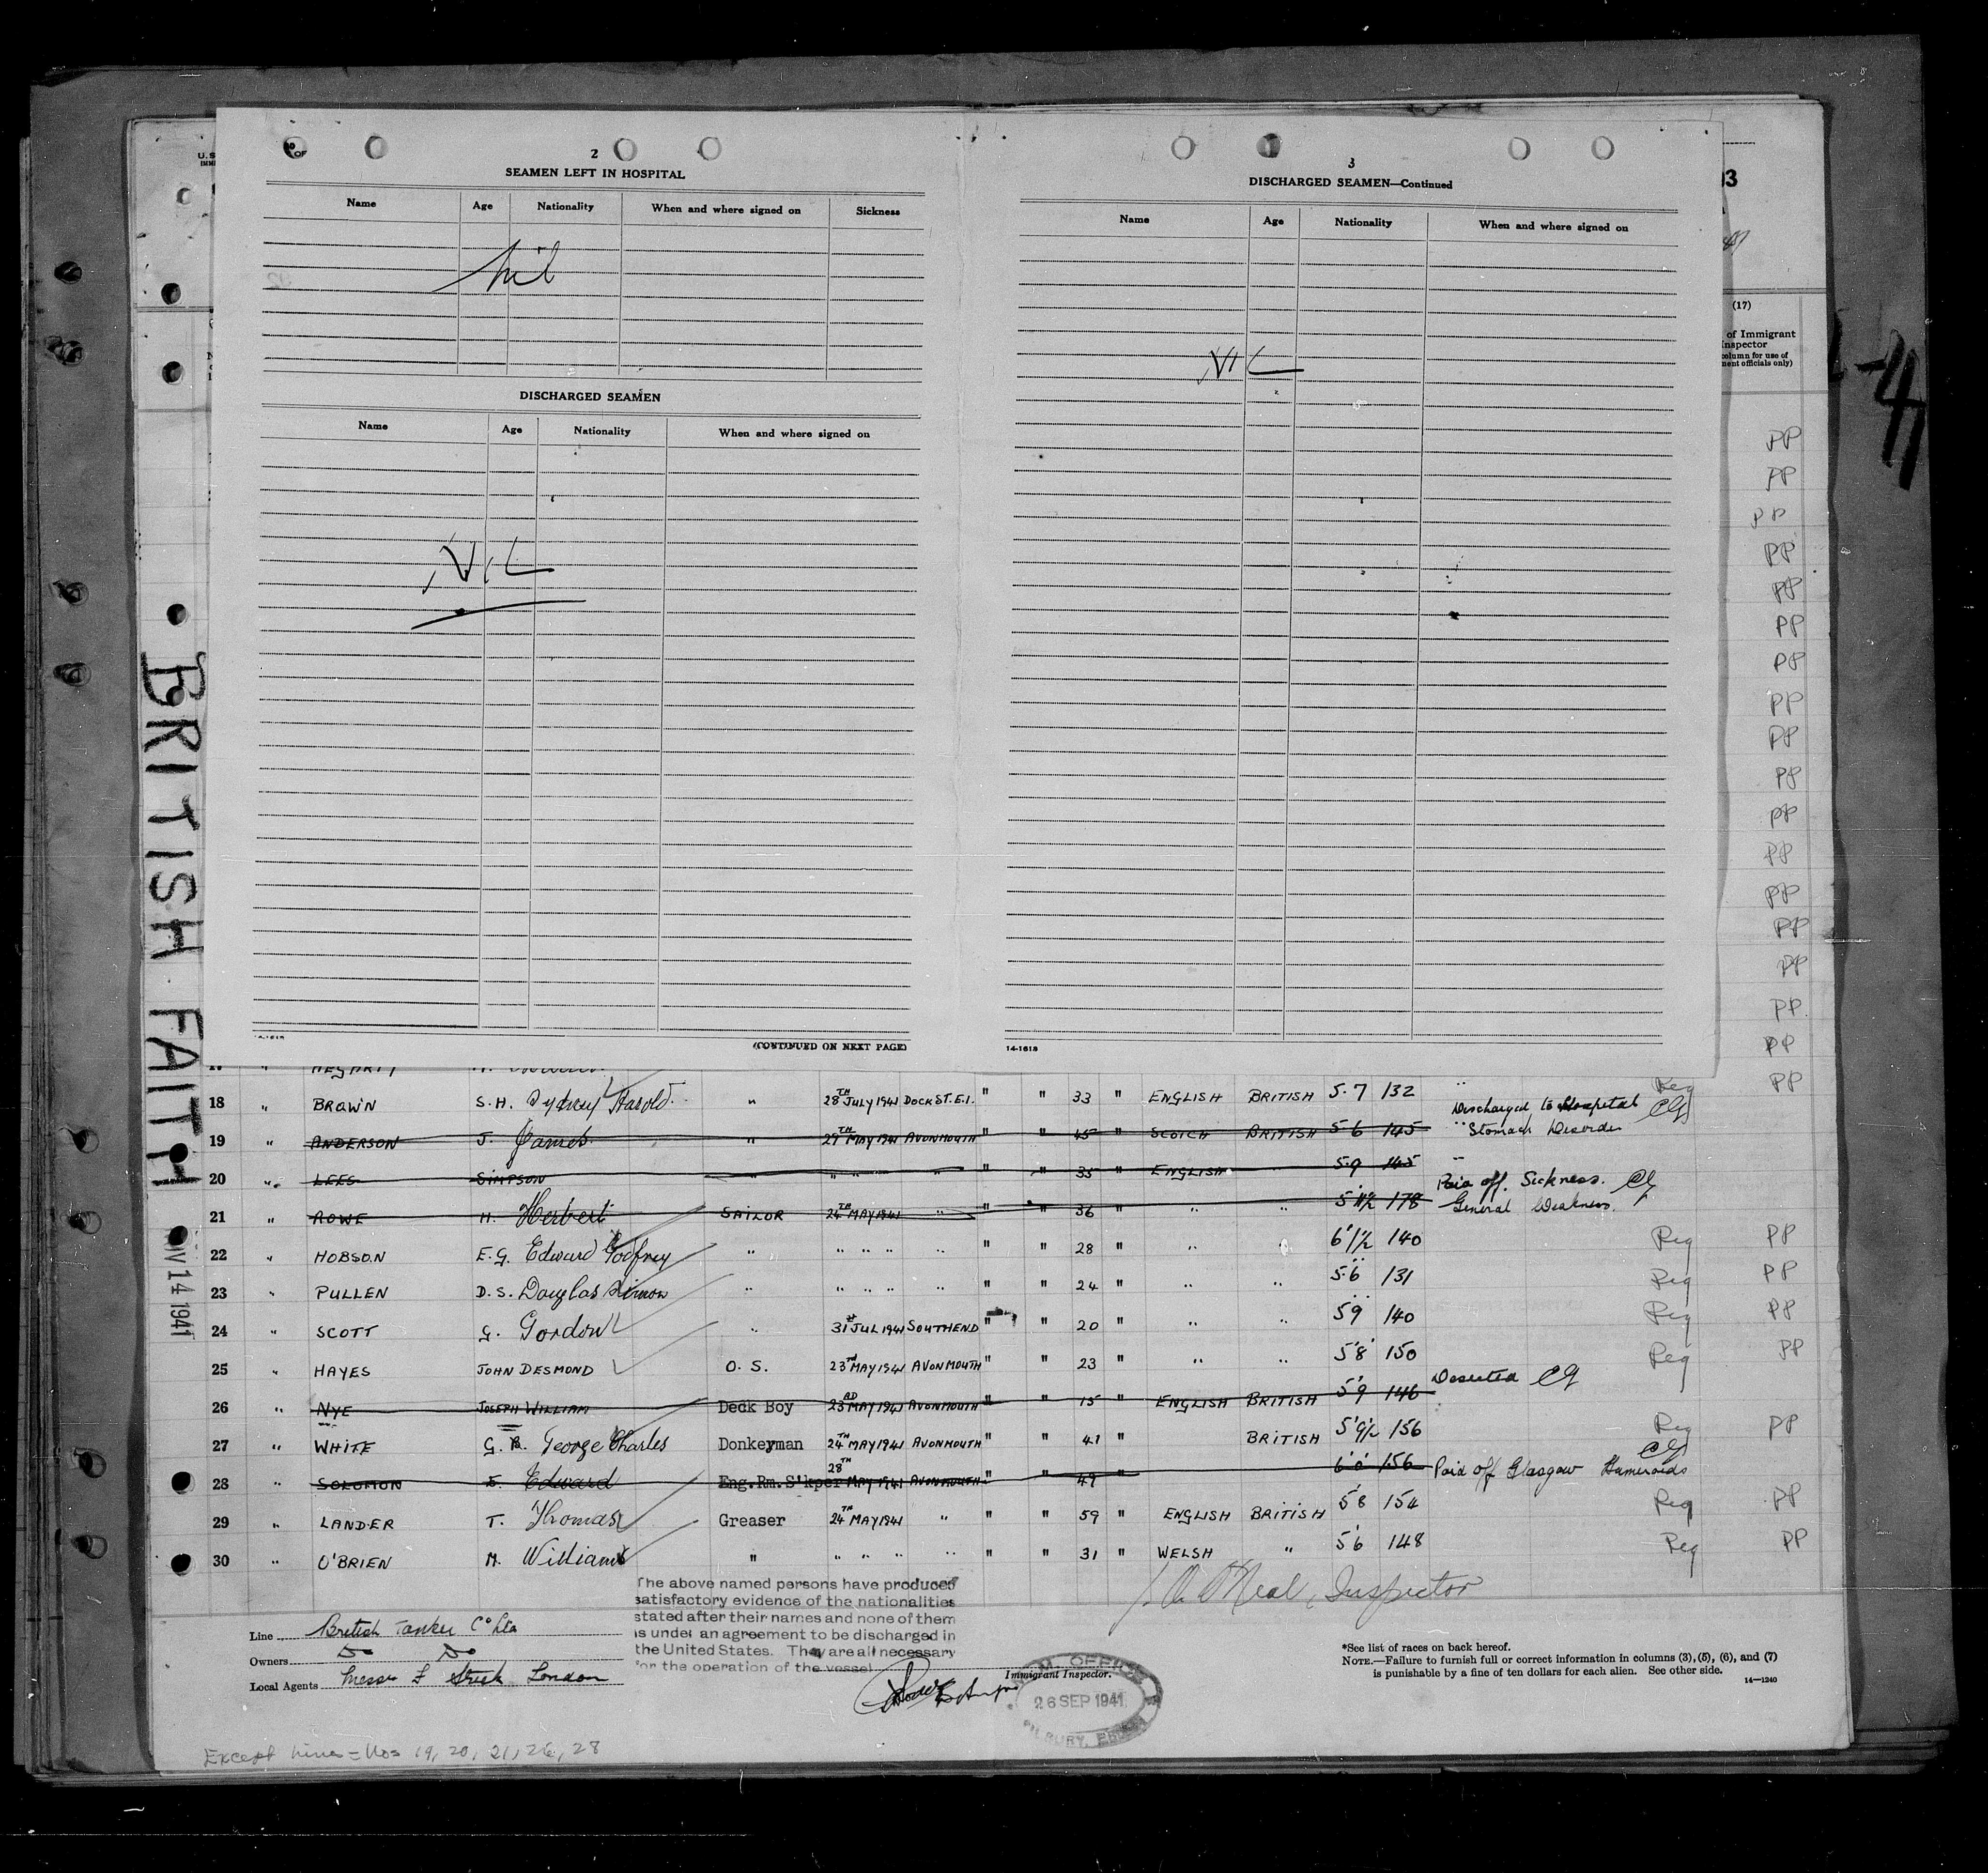 2
SEAMEN LEFT IN HOSPITAL
Name Age Nationality When and where signed on Sickness
Nil
DISCHARGED SEAMEN
Name Age Nationality When and where signed on
NIL
(CONTINUED ON NEXT PAGE)
3
DISCHARGED SEAMEN—Continued
Name Age Nationality When and where signed on
NIL
14-1618
U.S.
(17)
of Immigrant
Inspector
column for use of
ment officials only)
PP
PP
PP
PP
PP
PP
PP
PP
PP
PP
PP
PP
PP
PP
PP
PP
PP
BRITISH FAITH
14 1941
HEGARTY
18 " BROWN S.H. Sydney Harold " 28TH JULY 1941 DOCK ST. E.1. " " 33 " ENGLISH BRITISH 5.7 132 " Reg PP
Discharged to Hospital CG
19 " ANDERSON J. James " 29TH MAY 1941 AVONMOUTH " " 45 " SCOTCH BRITISH 5 6 145 " Stomach Disorder
20 " LEES SIMPSON " " " " " " 35 " ENGLISH 5.9 145 "
Paid off. Sickness. CG
21 " ROWE H. Herbert SAILOR 24TH MAY 1941 " " " 36 " " " 5 11½ 178 General Weakness.
22 " HOBSON E.G. Edward Godfrey " " " " " " " 28 " " " 6'1½ 140 Reg PP
23 " PULLEN D.S. Douglas Simon " " " " " " " 24 " " " 5.6 131 Reg PP
24 " SCOTT G. Gordon " 31ST JUL 1941 SOUTHEND " " 20 " " " 5 9 140 Reg PP
25 " HAYES JOHN DESMOND O.S. 23RD MAY 1941 AVONMOUTH " " 23 " " " 5 8 150 Reg PP
Deserted CG
26 " NYE JOSEPH WILLIAM Deck Boy 23RD MAY 1941 AVONMOUTH " " 15 " ENGLISH BRITISH 5'9 146
27 " WHITE G. B. George Charles Donkeyman 24TH MAY 1941 AVONMOUTH " " 41 " BRITISH 5'9½ 156 Reg PP
CG
28 " SOLOMON E. Edward Eng.Rm.S'kper 28TH MAY 1941 AVONMOUTH " " 49 6'0 156 Paid off Glasgow Hameroids
29 " LANDER T. Thomas Greaser 24TH MAY 1941 " " " 59 " ENGLISH BRITISH 5 8 154 Reg PP
30 " O'BRIEN M. William " " " " " " " 31 " WELSH " 5 6 148 Reg PP
The above named persons have produced
satisfactory evidence of the nationalities
stated after their names and none of them
is under an agreement to be discharged in
the United States. They are all necessary
for the operation of the vessel
Inspector
Line British Tanker Co Ltd
Owners Do Do
Local Agents Messrs F Strick London
Immigrant Inspector.
IMM. OFFICER
26 SEP 1941
TILBURY, ESSEX
*See list of races on back hereof.
NOTE.—Failure to furnish full or correct information in columns (3), (5), (6), and (7)
is punishable by a fine of ten dollars for each alien. See other side.
14—1240
Except lines = Nos 19, 20, 21, 26, 28